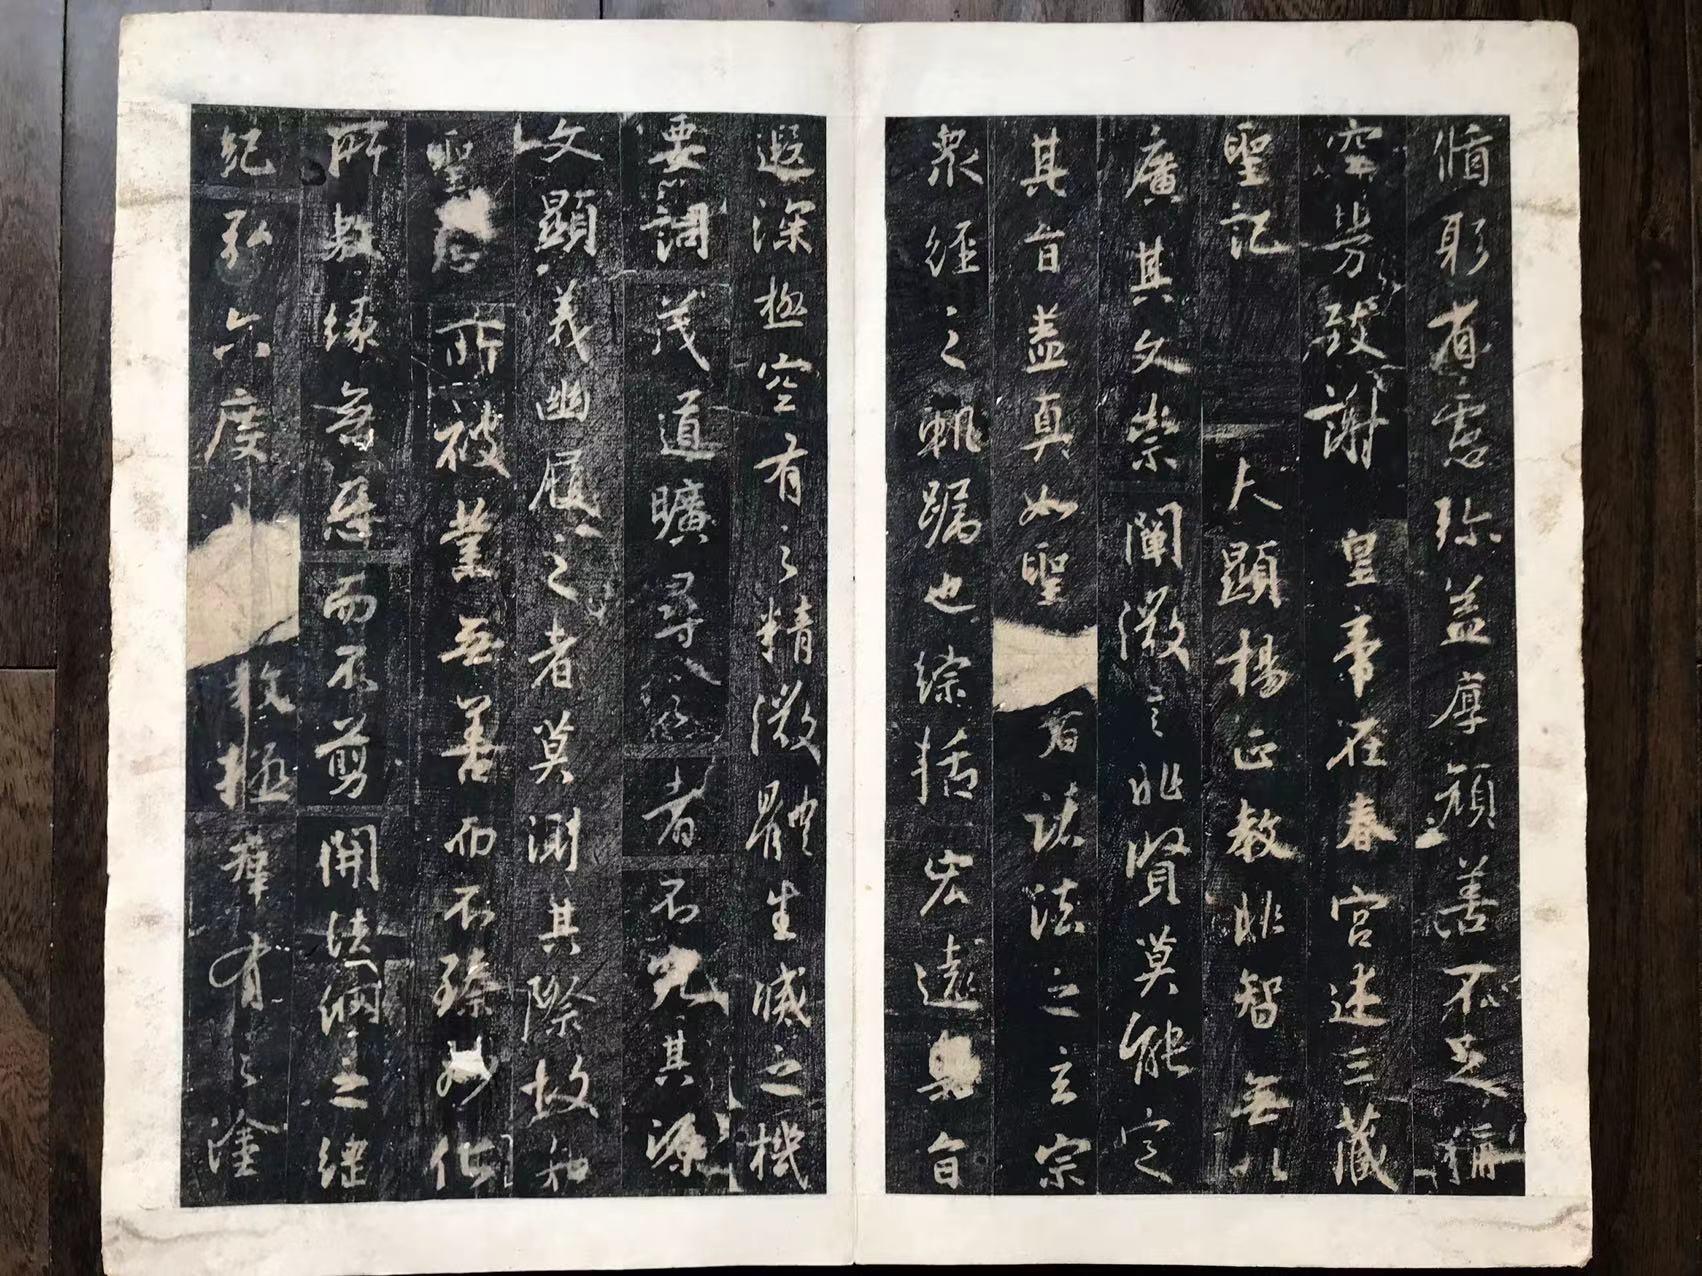 循躬省慮弥益厚顏善不足稱
空勞致謝　皇帝在春宮述三藏
聖記　夫顯揚正教非智無以
廣其文崇闡微言非賢莫能定
其旨盖真如聖者諸法之玄宗
衆經之軌躅也綜括宏遠奧旨
遐深極空有之精微體生滅之機
要詞茂道曠尋之者不究其源
文顯義幽履之者莫測其際故知
聖所被業無善而不臻妙化
所敷緣無惡而不剪開法網之綱
紀弘六度教拯群有之塗